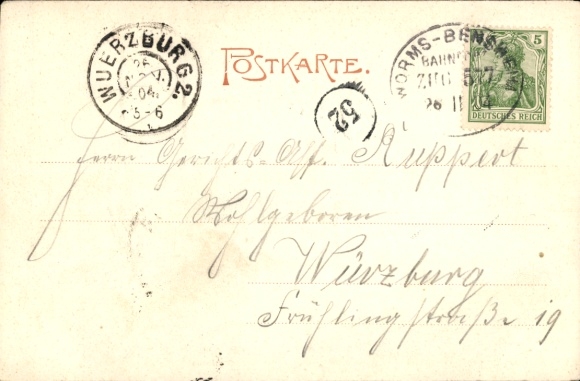 POSTKARTE.
WUERZBURG 2.
26
NOV.
04
5-6
52
WORMS-BENSHEIM
BAHNPOST
ZUG 577
26 11 4
5
DEUTSCHES REICH
Herrn Gerichts-Ass. Ruppert
Wohlgeboren
Würzburg
Frühlingstraße 19